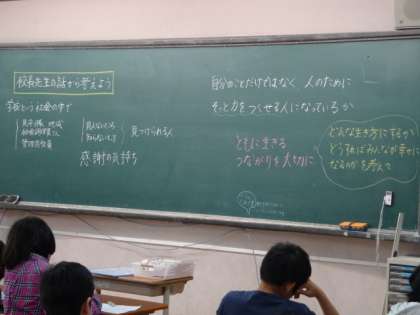 校長先生の話から考えよう
学校という社会の中で
見守り隊 地域
管理員
見えないところ
知らないところ
見つけられる人
感謝の気持ち
自分のことだけではなく 人のために
そっと力をつくせる人になっているか
ともに生きる
つながりを大切に
どんな生き方にするか
どうすればみんなが幸せに
なるのかを考えて